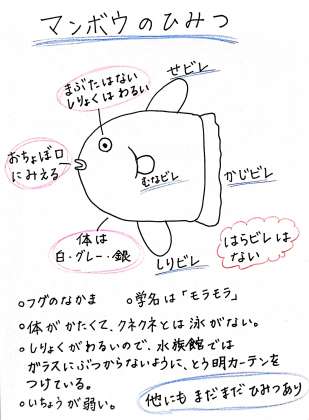 マンボウのひみつ
まぶたはない
しりょくはわるい
せビレ
おちょぼ口
にみえる
むなビレ
かじビレ
体は
白・グレー・銀
しりビレ
はらビレは
ない
○フグのなかま ○学名は「モラモラ」
○体がかたくて、クネクネとは泳がない。
○しりょくがわるいので、水族館では
ガラスにぶつからないように、とう明カーテンを
つけている。
○いちょうが弱い。
他にもまだまだひみつあり